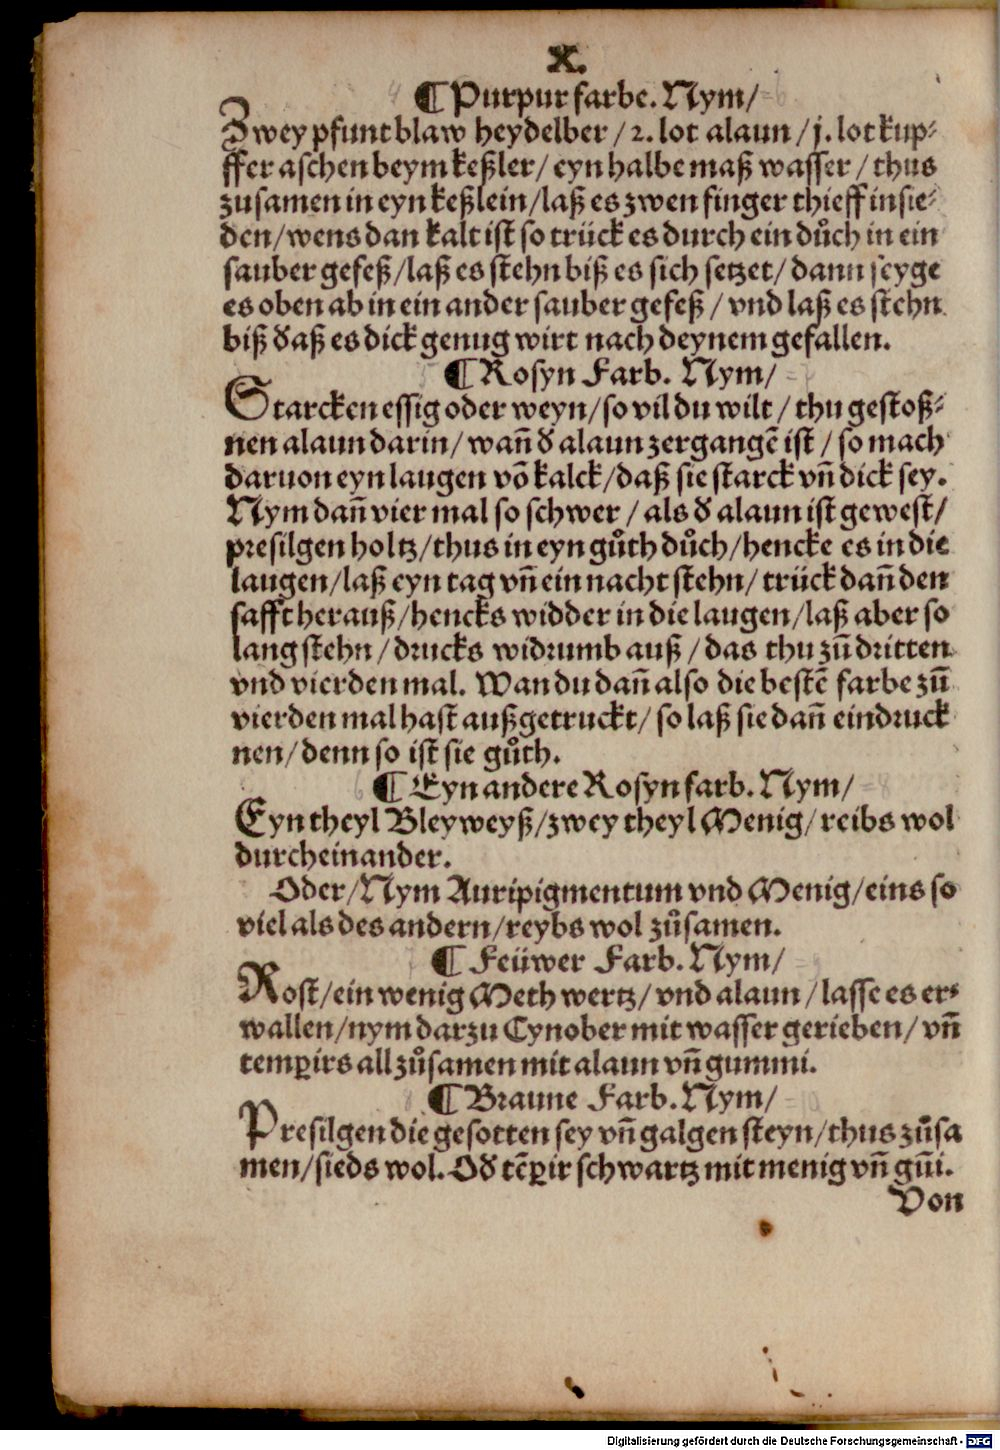 X.
¶ Purpur farbe. Nym/
Zwey pfunt blaw heydelber / 2. lot alaun / j. lot kup⸗
ffer aschen beym keßler / eyn halbe maß wasser / thus
zusamen in eyn keßlein / laß es zwen finger thieff insie⸗
den / wens dan kalt ist so trück es durch ein důch in ein
sauber gefeß / laß es stehn biß es sich setzet / dann seyge
es oben ab in ein ander sauber gefeß / vnd laß es stehn
biß daß es dick genug wirt nach deynem gefallen.
¶ Rosyn Farb. Nym/
Starcken essig oder weyn / so vil du wilt / thu gestoß⸗
nen alaun darin / wañ d̕ alaun zergangẽ ist / so mach
daruon eyn laugen võ kalck / daß sie starck vñ dick sey.
Nym dañ vier mal so schwer / als d̕ alaun ist gewest /
presilgen holtz / thus in eyn gůth důch / hencke es in die
laugen / laß eyn tag vñ ein nacht stehn / trück dañ den
safft herauß / hencks widder in die laugen / laß aber so
lang stehn / drucks widrumb auß / das thu zũ dritten
vnd vierden mal. Wan du dañ also die bestẽ farbe zũ
vierden mal hast außgetruckt / so laß sie dañ eindruck
nen / denn so ist sie gůth.
¶ Eyn andere Rosyn farb. Nym/
Eyn theyl Bleyweyß / zwey theyl Menig / reibs wol
durcheinander.
Oder / Nym Auripigmentum vnd Menig / eins so
viel als des andern / reybs wol zůsamen.
¶ Feüwer Farb. Nym/
Rost / ein wenig Meth wertz / vnd alaun / lasse es er⸗
wallen / nym darzu Cynober mit wasser gerieben / vñ
temꝑirs all zůsamen mit alaun vñ gummi.
¶ Braune Farb. Nym/
Presilgen die gesotten sey vñ galgen steyn / thus zůsa
men / sieds wol. Od̕ tẽꝑir schwartz mit menig vñ gũi.
Von
Digitalisierung gefördert durch die Deutsche Forschungsgemeinschaft - DFG